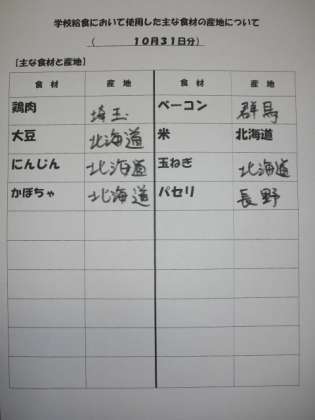 学校給食において使用した主な食材の産地について
（　　　１０月３１日分）
［主な食材と産地］
食　材　産　地　食　材　産　地
鶏肉　埼玉　ベーコン　群馬
大豆　北海道　米　北海道
にんじん　北海道　玉ねぎ　北海道
かぼちゃ　北海道　パセリ　長野